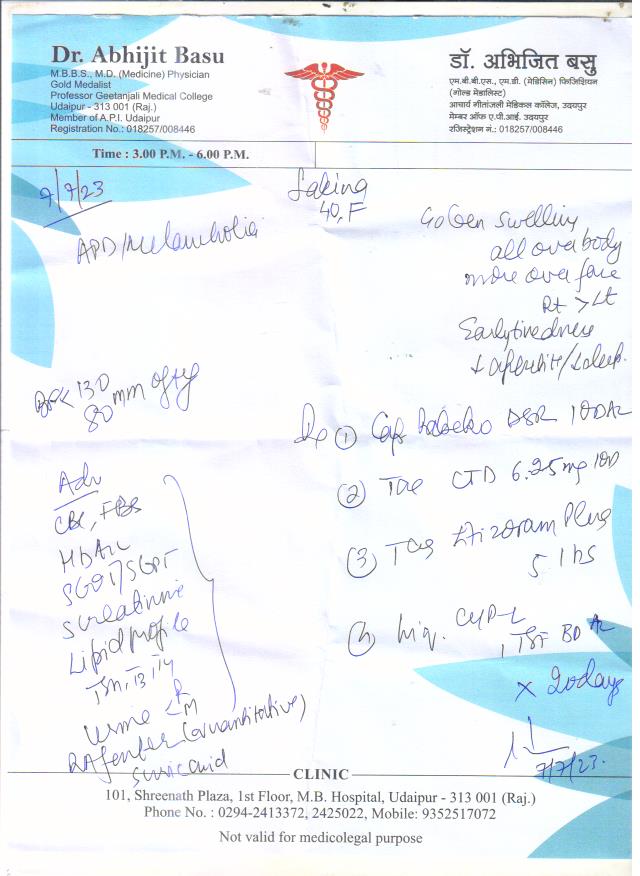 Dr. Abhijit Basu
M.B.B.S., M.D. (Medicine) Physician
Gold Medalist
Professor Geetanjali Medical College
Udaipur - 313 001 (Raj.)
Member of A.P.I. Udaipur
Registration No.: 018257/008446
Time : 3.00 P.M. - 6.00 P.M.
डॉ. अभिजित बसु
एम.बी.बी.एस., एम.डी. (मेडिसिन) फिजिशियन
(गोल्ड मेडालिस्ट)
आचार्य गीतांजली मेडिकल कॉलेज, उदयपुर
मेम्बर ऑफ ए.पी.आई. उदयपुर
रजिस्ट्रेशन नं.: 018257/008446
7/7/23
40, F
APD/Melancholia
swelling
all over body
more over face
Rt > Lt
Early tiredness
130
80 mm of Hg
Adv
CBC, FBS
SGOT/SGPT
S creatinine
Lipid profile
TSH, T3 T4
Urine R
M
RA factor (Quantitative)
S uric acid
Rx 1 Cap DSR 1OD
2 Tab CTD 6.25 mg 1OD
3 Tab Plus
5 1 hs
4 Liq.
1 TSF BD
x 20 days
7/7/23.
CLINIC
101, Shreenath Plaza, 1st Floor, M.B. Hospital, Udaipur - 313 001 (Raj.)
Phone No. : 0294-2413372, 2425022, Mobile: 9352517072
Not valid for medicolegal purpose